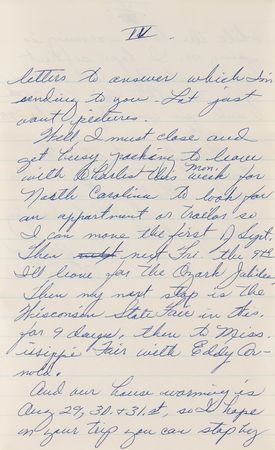 IV.
letters to answer which I'm
sending to you. Lot just
want pictures.
Well I must close and
get busy packing to leave
with Charles this
Mon.
week for
North Carolina to look for
an appartment or trailor so
I can move the first of Sept.
Then next Fri. the 9th
I'll leave for the Ozark Jubilee
Then my next stop is the
Wisconsin State Fair in
for 9 days. then to Miss.
issippi Fair with Eddy Ar-
nold.
And our house warming is
Aug 29, 30 & 31st, so I hope
on your trip you can stop by